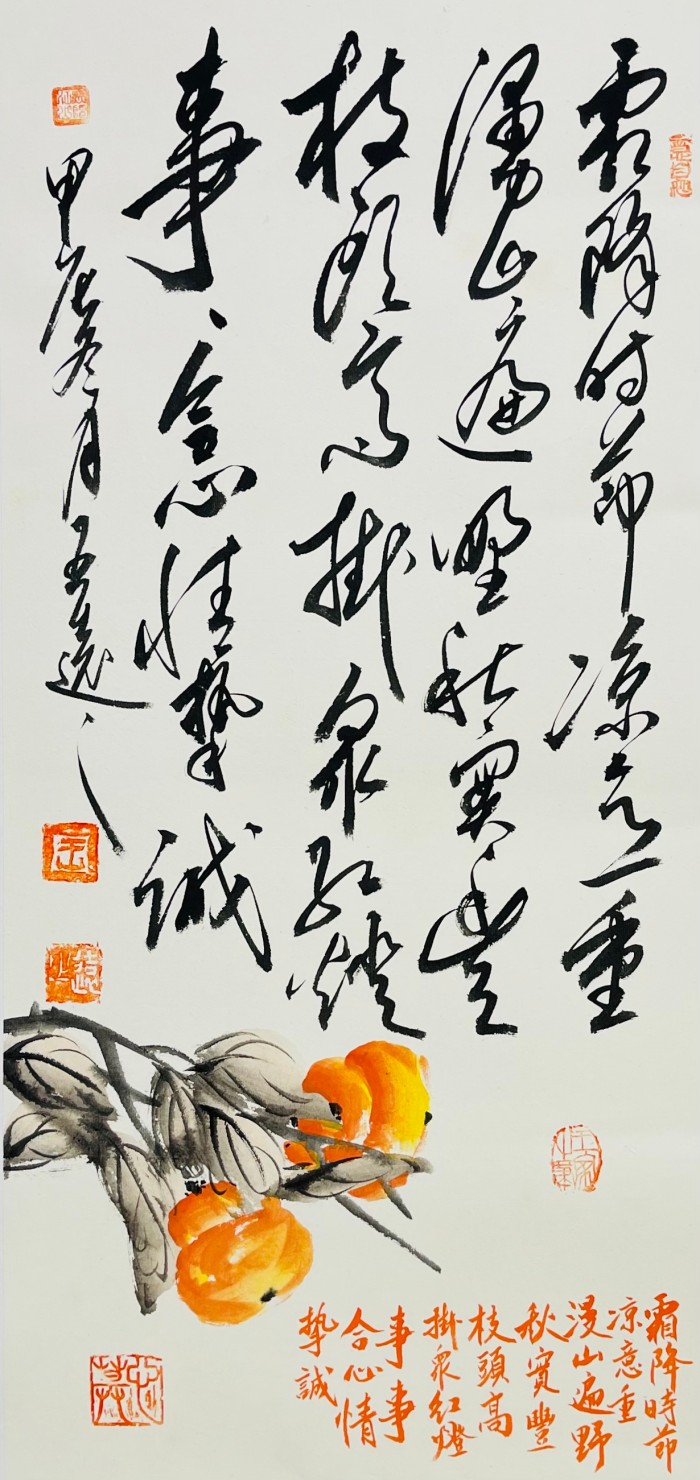 霜降时節凉意重
漫山遍野秋實豐
枝頭高掛衆红燈
事、合心情摯誠
甲辰冬月
霜降時節
凉意重
漫山遍野
秋實豐
枝頭高
掛衆紅燈
事事
合心情
摯誠